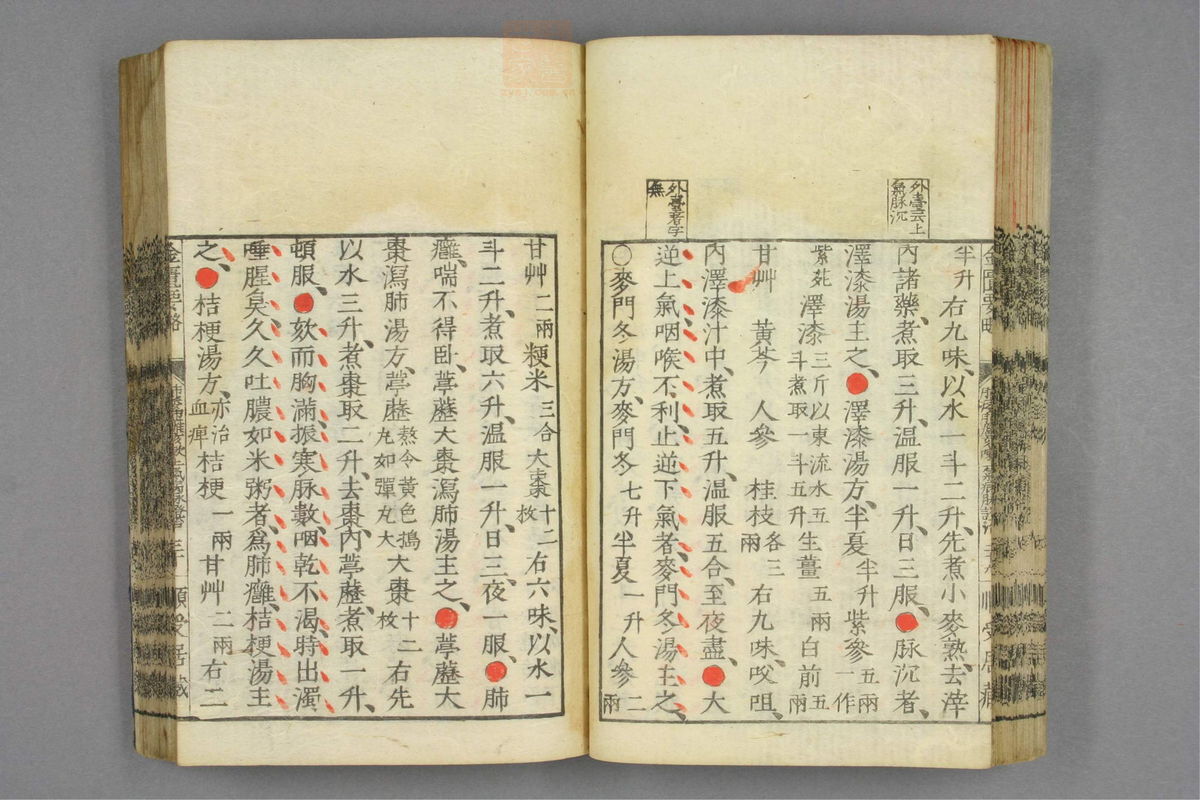 外臺云上
無脉沉
外臺者字
無
半升右九味、以水一斗二升、先煮小麥熟、去滓
內諸藥、煮取三升、温服一升、日三服、●脉沉者、
澤漆湯主之、●澤漆湯方、半夏半升紫參五兩一作
紫菀澤漆三斤以東流水五斗煮取一斗五升生薑五兩白前五兩
甘艸 黃芩 人參 桂枝各三兩右九味、㕮咀、
內澤漆汁中、煮取五升、温服五合、至夜盡、●大
逆上氣咽喉不利、止逆下氣者、麥門冬湯主之、
○麥門冬湯方、麥門冬七升半夏一升人參二兩
甘艸二兩粳米三合大棗十二枚右六味、以水一
斗二升、煮取六升、温服一升、日三夜一服、●肺
癰、喘不得卧、葶藶大棗瀉肺湯主之、●葶藶大
棗瀉肺湯方、葶藶熬令黃色搗丸如彈丸大大棗十二枚右先
以水三升、煮棗取二升、去棗、內葶藶、煮取一升、
頓服、●欬而胸滿、振寒脉數、咽乾不渴、時出濁
唾腥臭、久久吐膿如米粥者、爲肺癰、桔梗湯主
之、●桔梗湯方、亦治血痺桔梗一兩甘艸二兩右二